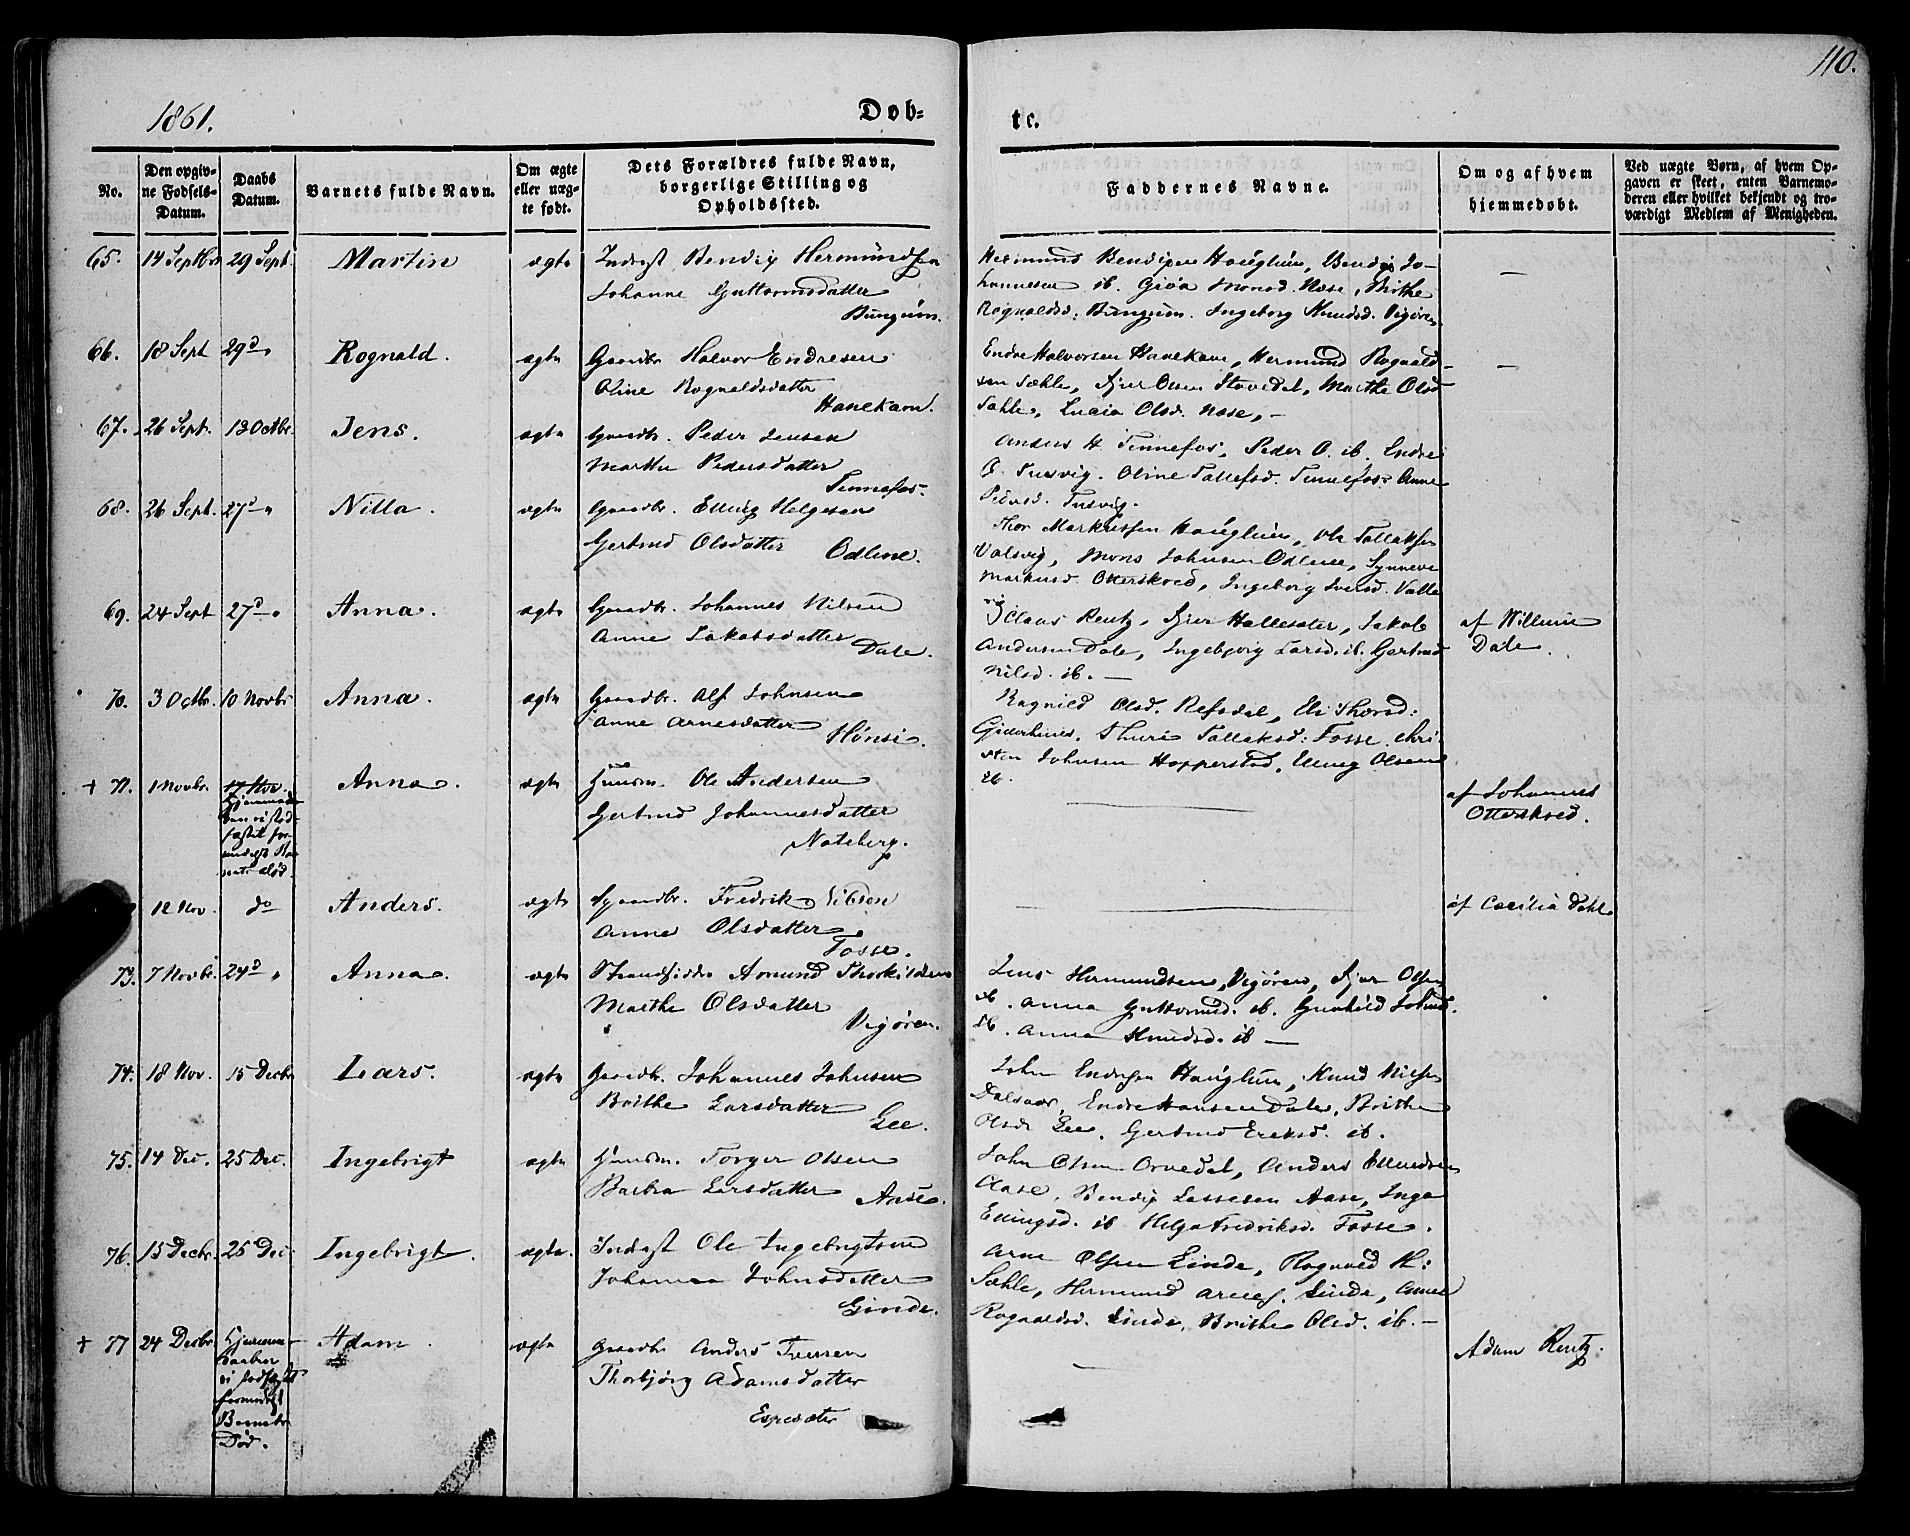 110.
1861.
Døb-
te.
No.
Den opgiv-
ne Fødsels-
Datum.
Daabs
Datum.
Barnets fulde Navn.
Om ægte
eller uæg-
te født.
Dets Forældres fulde Navn,
borgerlige Stilling og
Opholdssted.
Faddernes Navne.
Om og af hvem
hjemmedøbt.
Ved uægte Børn, af hvem Op-
gaven er skeet, enten Barnemo-
deren eller hvilket bekjendt og tro-
værdigt Medlem af Menigheden.
65. 14 Septbr 29 Sept. Martin ægte Inderst Bendix Hermundsen
Johanne Guttormsdatter
Bungum.
Hermund Bendixen Hauglum, Bendix Jo-
hannesen ib. Giøa Monsd. Næse, Brithe
Rognaldsd. Bungum. Ingeborg Knudsd. Vigøren.
—
66. 18 Sept 29d „ Rognald. ægte Gaardbr. Halvor Endresen
Oline Rognaldsdatter
Hanekam.
Endre Halvorsen Hanekam, Hermund Rognald-
sen Sæhle, Sjur Olsen Stavedal, Marthe Olsd
Sæhle, Lucia Olsd. Næse, —
—
67. 26 Sept. 13 Octbr. Jens. ægte Gaardbr. Peder Jensen
Marthe Pedersdatter
Tennefos.
Anders H Tennefos, Peder O. ib. Endre
Ø. Tusvig. Oline Tollefsd. Tennefos. Anne
Pedersd. Tusvig.
68. 26 Sept. 27d „ Nilla. ægte Gaardbr. Elling Helgesen
Gertrud Olsdatter Ødline.
Thor Markussen Hauglum, Ole Tollaksen
Valsvig, Mons Johnsen Ødline, Synneve
Markusd. Otterskred, Ingeborg Iversd. Valle
vig
69. 24 Sept 27d „ Anna. ægte Gaardbr. Johannes Nilsen
Anne Jakobsdatter
Dale.
Claus Rentz, Sjur Hallesæter, Jakob
Andersen Dale, Ingebjørg Larsd. ib. Gertrud
Nilsd. ib. —
af Willum
Dale.
70. 3 Octbr. 10 Novbr Anna. ægte Gaardbr. Alf Johnsen
Anne Arnesdatter
Hønsi.
Ragnild Olsd. Refsdal, Eli Thorsd:
Thuri Tollaksd: Fosse, Chri-
sten Johnsen Hopperstad, Olsen
ib.
+ 71. 1 Novbr. 17 Nov. Anna. ægte Huusm. Ole Andersen
Hjemmedaa-
ben ei stad-
fæstet for-
medelst Bar-
nets død.
Gertrud Johannesdatter
Nateberg.
—
af Johannes
Otterskred.
12 Nov. do Anders. ægte Gaardbr. Fredrik Nilsen
Anne Olsdatter
Fosse.
—
af Cæcilia Dahle
73. 7 Novbr. 24d „ Anna. ægte Strandsidder Amund Thorkildsen
Marthe Olsdatter
Vigøren.
Jens Hermundsen Vigøren, Sjur Olsen
ib. Anna Guttormsd. ib. Gunhild Johnsd.
ib. Anna Knudsd. ib —
74. 18 Nov. 15 Decbr Lars. ægte Gaardbr. Johannes Johnsen
Brithe Larsdatter
Lee.
John Endresen Hauglum, Knud Nilsen
Endre Hansen Dale, Brithe
Olsd. Lee, Gertrud Eriksd. ib.
75. 14 Dec. 25 Dec. Ingebrigt ægte Huusm. Torger Olsen
Barbra Larsdatter Aase.
John Olsen Orvedal, Anders Ellendsen
Aase, Bendix Lassesen Aase, Inga
Ellingsd. ib Helga Fredriksd. Fosse.
76. 15 Decbr. 25 Dec. Ingebrigt. ægte. Inderst Ole Ingebrigtsen
Johanna Johnsdatter
Linde.
Arne Olsen Linde, Rognald H:
Sæhle, Hermund Arnes. Linde, Anne
Rognaldsd. Linde, Brithe Olsd. ib. —
+ 77 24 Decbr. Hjemme- Adam. ægte Gaardbr Anders Iversen
daaben
ei stadfæstet
formedelst
Barnets
Død.
Thorbjørg Adamsdatter
Espesæter
—
Adam Rentz.